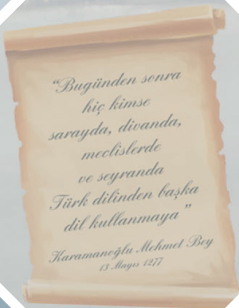 “Bugünden sonra
hiç kimse
sarayda, divanda,
meclislerde
ve seyranda
Türk dilinden başka
dil kullanmaya”
Karamanoğlu Mehmet Bey
13 Mayıs 1277